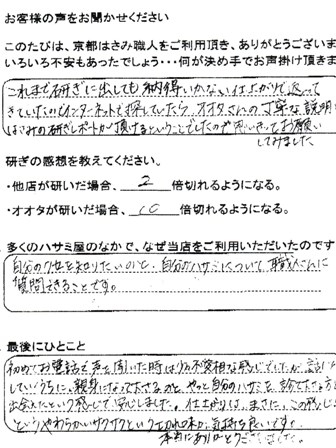 お客様の声をお聞かせください
このたびは、京都はさみ職人をご利用頂き、ありがとうございま
いろいろ不安もあったでしょう・・・何が決め手でお声掛け頂きま
これまで研ぎに出しても納得いかない仕上がりで返って
きていたのでインターネットで探していたら、オオタさんの丁寧な説明
はさみの研ぎレポートが頂けるということでしたので思いきってお願い
してみました
研ぎの感想を教えてください。
・他店が研いだ場合、 2 倍切れるようになる。
・オオタが研いだ場合、 10 倍切れるようになる。
多くのハサミ屋のなかで、なぜ当店をご利用いただいたのです
自分のクセを知りたいのと、自分のハサミについて職人さんに
質問できることです。
最後にひとこと
初めてお電話で声を聞いた時は 不愛想な感じでしたが、話
していくうちに、親身になって下さるので、やっと自分のハサミを
出会えたという感じで安心しました。仕上がりは、まさに、この感じ
というやわらかいサクサクという 気持ち良いです。
本当にありがとうございました。